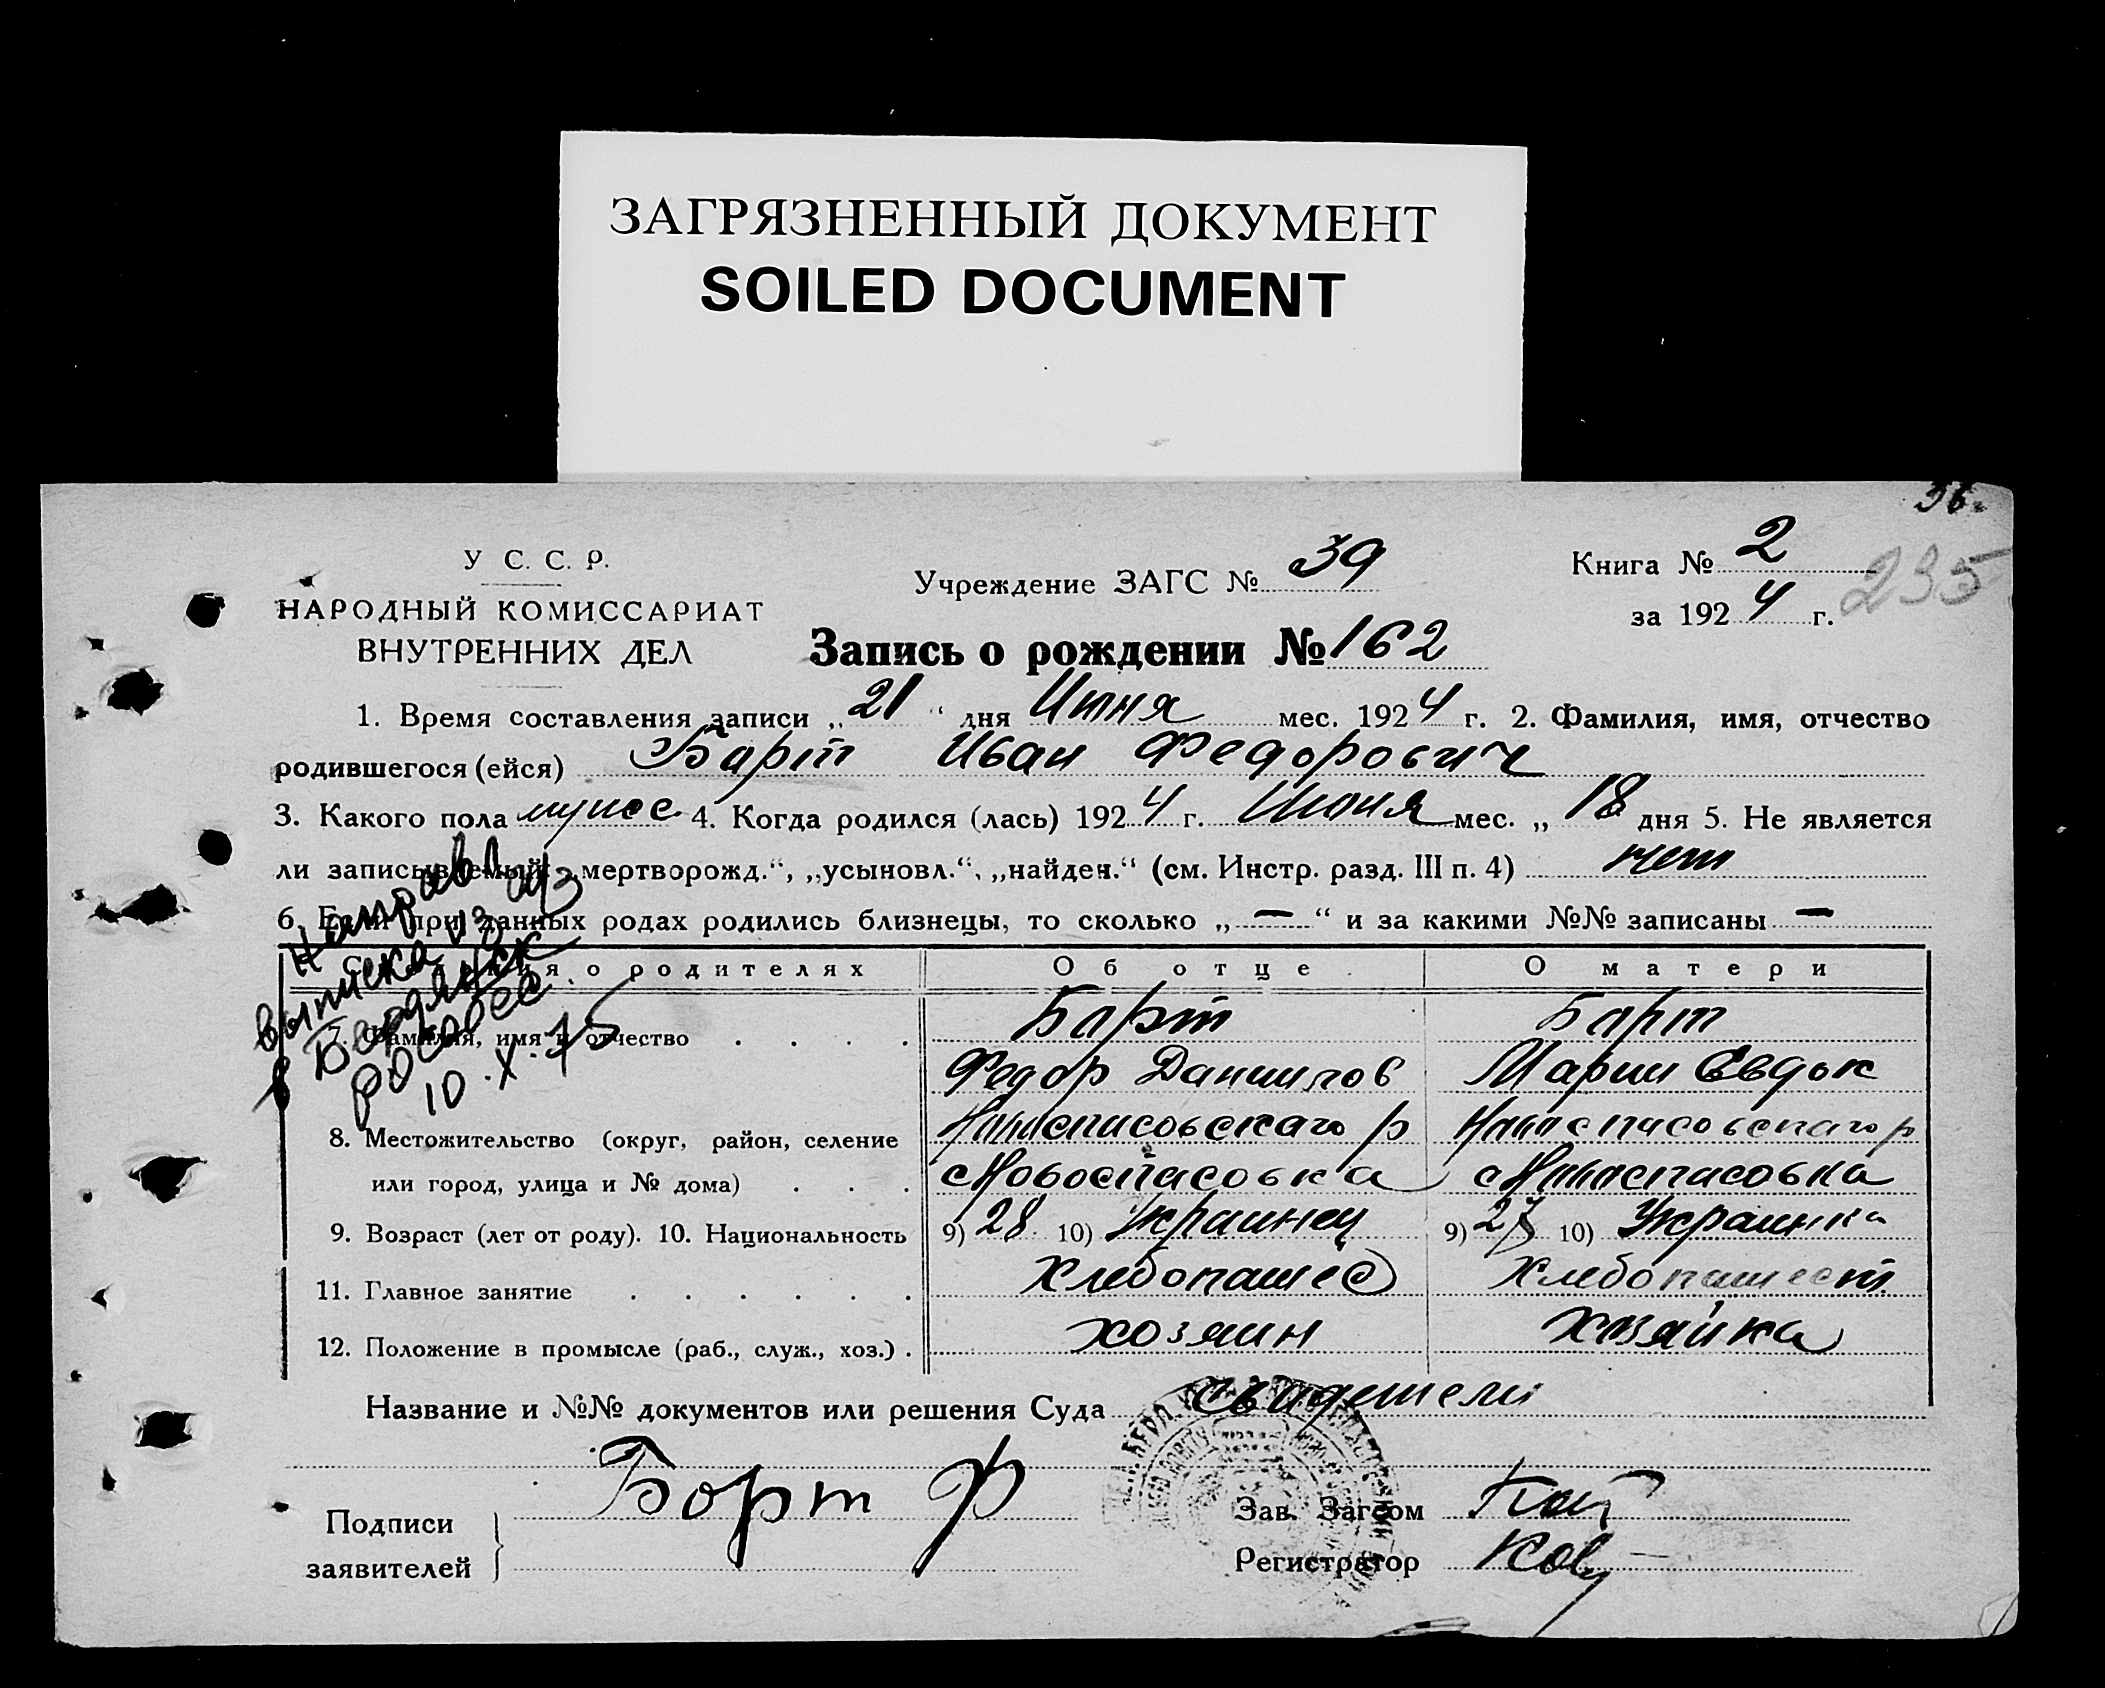 ЗАГРЯЗНЕННЫЙ ДОКУМЕНТ
SOILED DOCUMENT
36.
У С. С. Р.
НАРОДНЫЙ КОМИССАРИАТ
ВНУТРЕННИХ ДЕЛ
Учреждение ЗАГС № 39
Книга № 2
за 1924 г.
235
Запись о рождении № 162
1. Время составления записи „21“ дня Июня мес. 1924 г. 2. Фамилия, имя, отчество
родившегося (ейся) Барт Иван Федорович
3. Какого пола мужс. 4. Когда родился (лась) 1924 г. Июня мес. „18 дня 5. Не является
ли записываемый „мертворожд.“, „усыновл.“, „найден.“ (см. Инстр. разд. III п. 4) нет
6. Если при данных родах родились близнецы, то сколько „—“ и за какими №№ записаны —
Сведения о родителях Об отце О матери
7. Фамилия, имя и отчество Барт Барт
Федор Данилов Марии Евдок
8. Местожительство (округ, район, селение Новоспасовскаго р Новоспасовскаго р
или город, улица и № дома) с Новоспасовка с Новоспасовка
9. Возраст (лет от роду). 10. Национальность 9) 28 10) Украинец 9) 27 10) Украинка
11. Главное занятие Хлебопашес Хлебопашест
12. Положение в промысле (раб., служ., хоз.) хозяин хозяйка
Направл
выписка из
в Бердянск
10.X.75
Название и №№ документов или решения Суда Свидетели
Подписи
заявителей
Борт Ф
Зав. Загсом
Регистратор